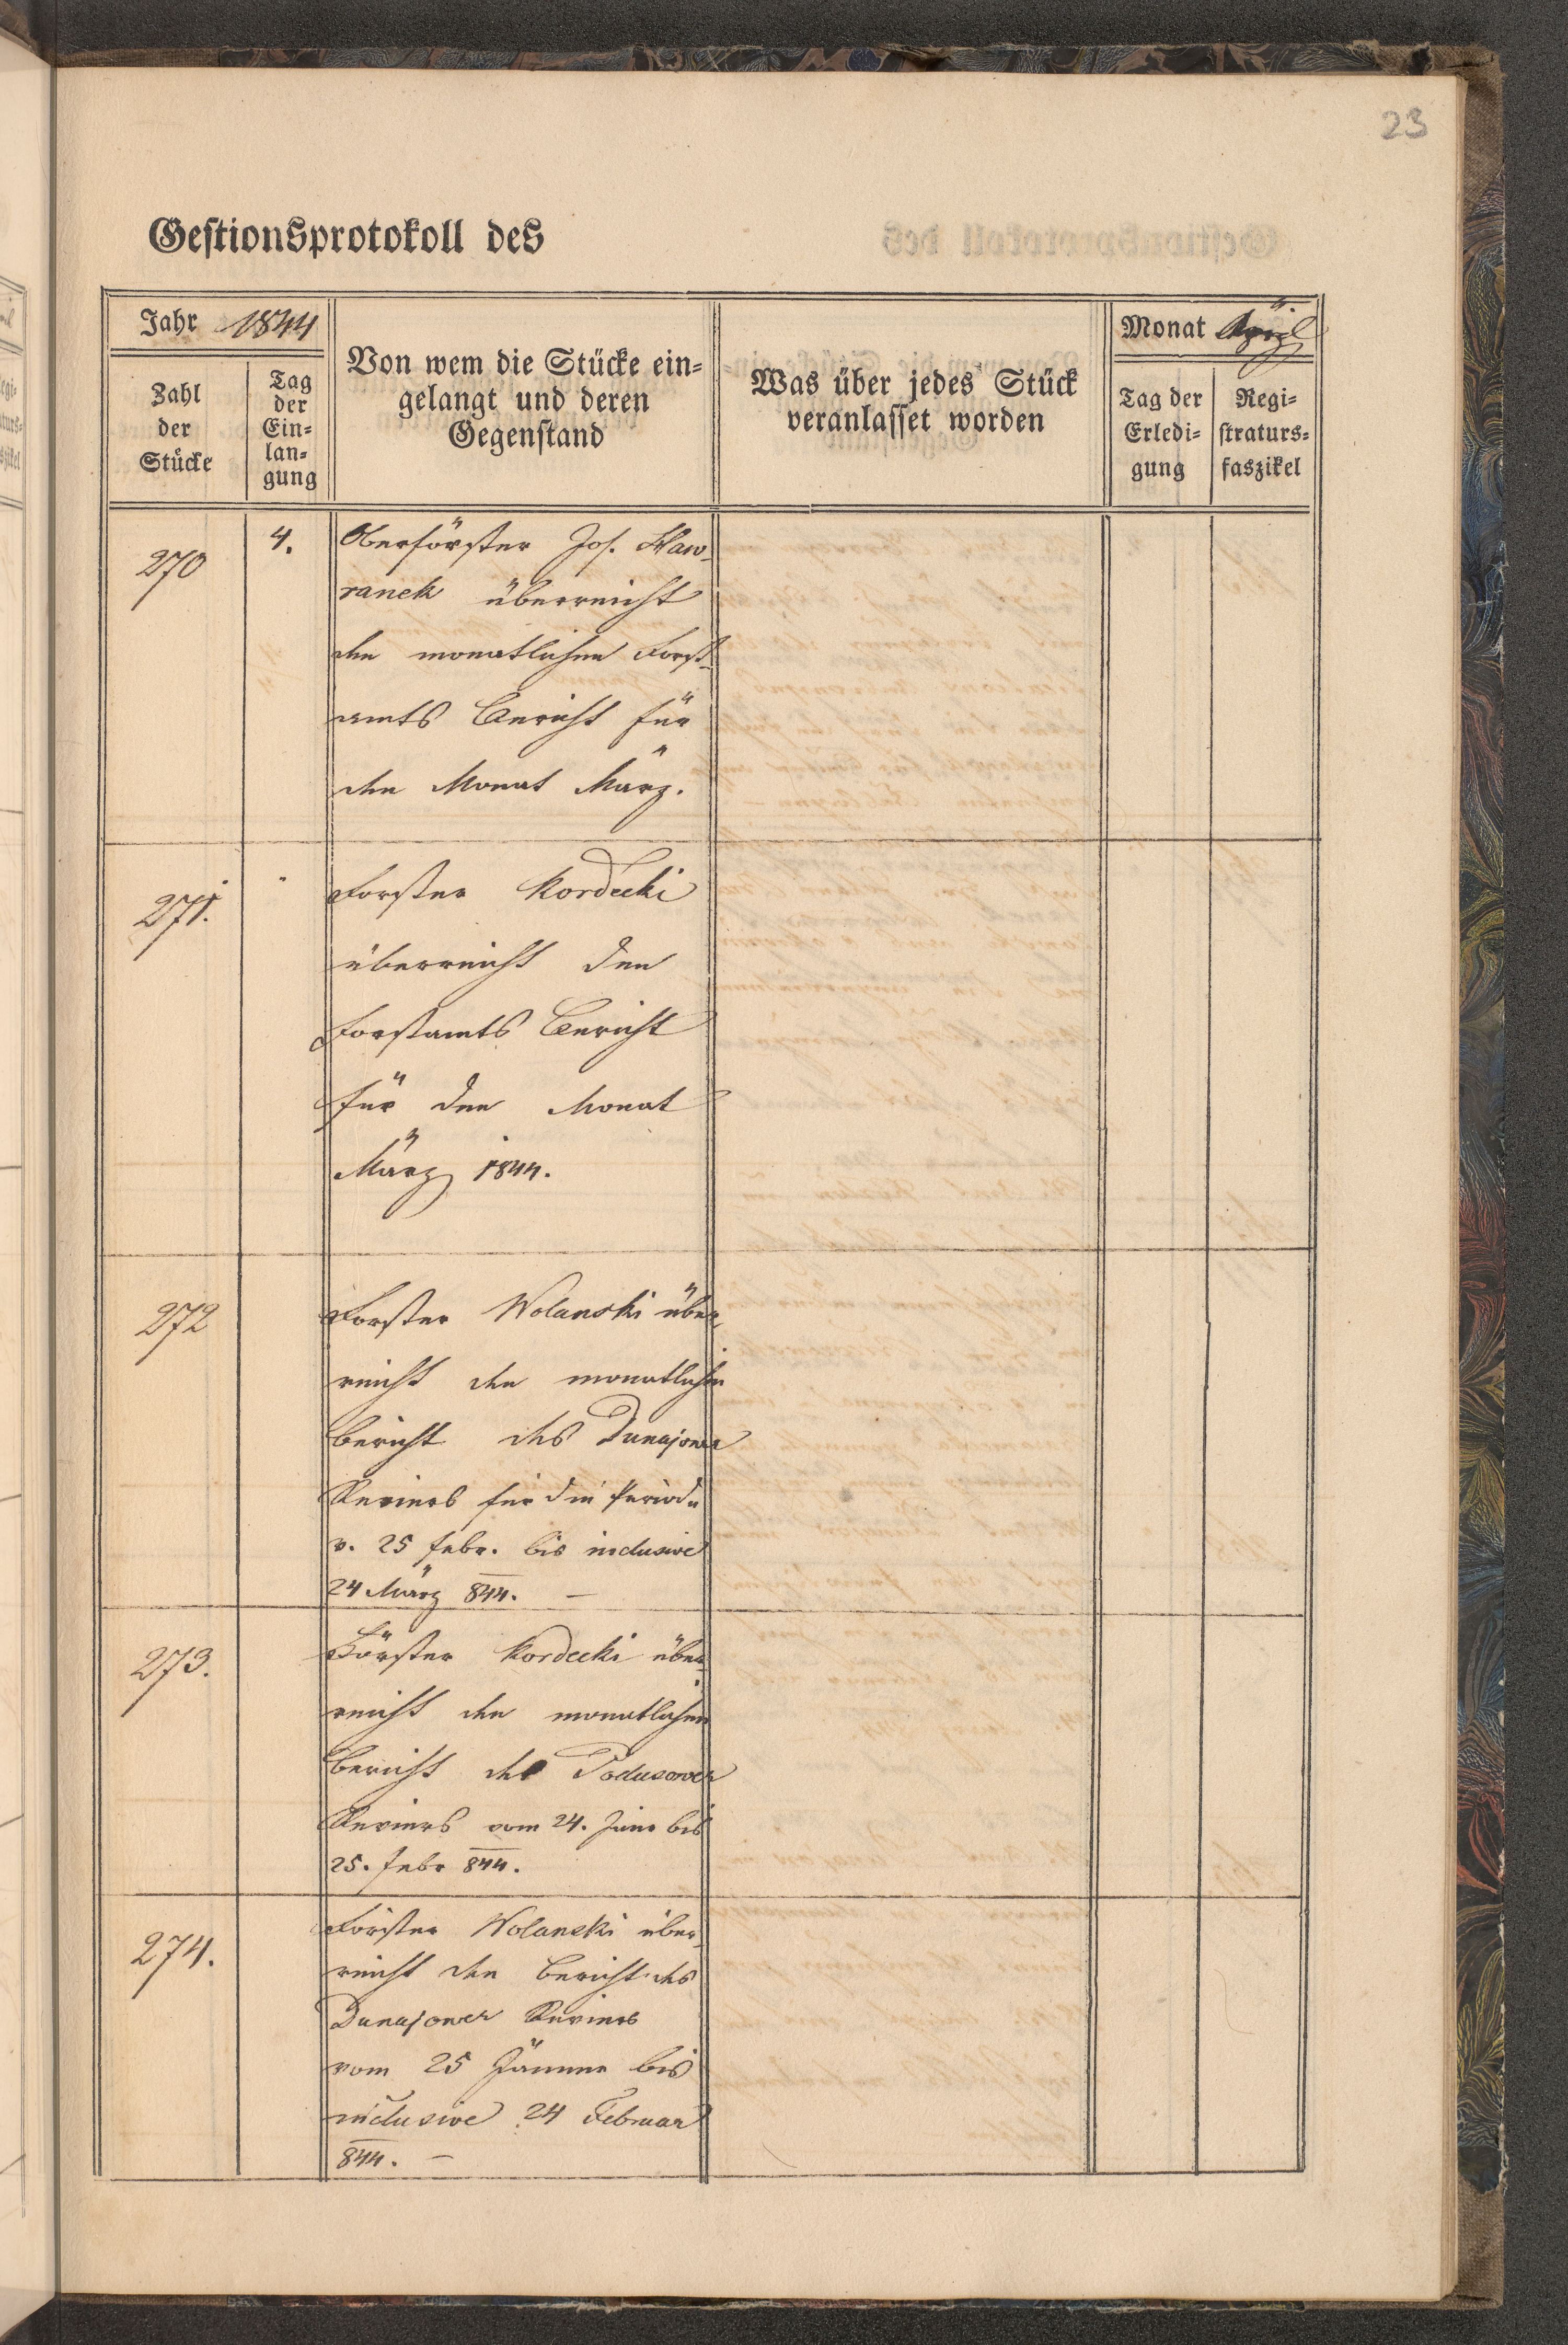 23
Gestionsprotokoll des
Jahr 1844
Zahl der Stücke
Tag der Ein-
lan-
gung
Von wem die Stücke ein-
gelangt und deren
Gegenstand
Was über jedes Stück
veranlasset worden
Monat April
Tag der
Erledi-
gung
Regi-
straturs-
faszikel
270
4.
Oberförster Jos. Haw-
ranek überreicht
den monatlichen Forst-
amts Bericht für
den Monat März.
271.
"
Forster Kordecki
überreicht den
Forstamts Bericht
für den Monat
März 1844.
272
Forster Wolanski über-
reicht den monatlichen
Bericht des Dunajower
Reviers für die Periode
v. 25 Febr. bis inclusive
24 März 844. —
273.
Förster Kordecki über-
reicht den monatlichen
Bericht des Podusower
Reviers vom 24. bis
25. Febr 844.
274.
Förster Wolanski über-
reicht den Bericht des
Dunajower Reviers
vom 25 Jänner bis
inclusive 24 Februar
844. —